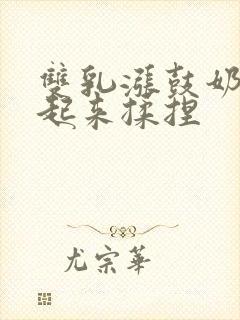 雙乳漲鼓奶
起来揉捏
尤宗華